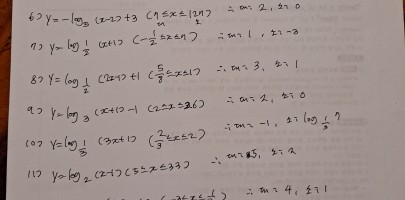 6) y = -log₃ (x-2)+3 (5≤x≤12n) ∴ m = 2, 至: 0
7) y = log ½ (x+1) (-½≤x≤7) ∴ m: 1, 至: -3
8) y = log ½ (2x-1)+1 (⅝≤x≤1) ∴ m: 3, 至: 1
9) y = log ₃ (x+1)-1 (2≤x≤26) ∴ m: 2, 至: 0
(0) y = log ⅓ (3x+1) (⅔≤x≤2) ∴ m: -1, 至: log ⅓ 7
(1) y = log ₂ (x-1) (5≤x≤33) ∴ m: 5, 至: 2
∴ m: 4, 至: 1